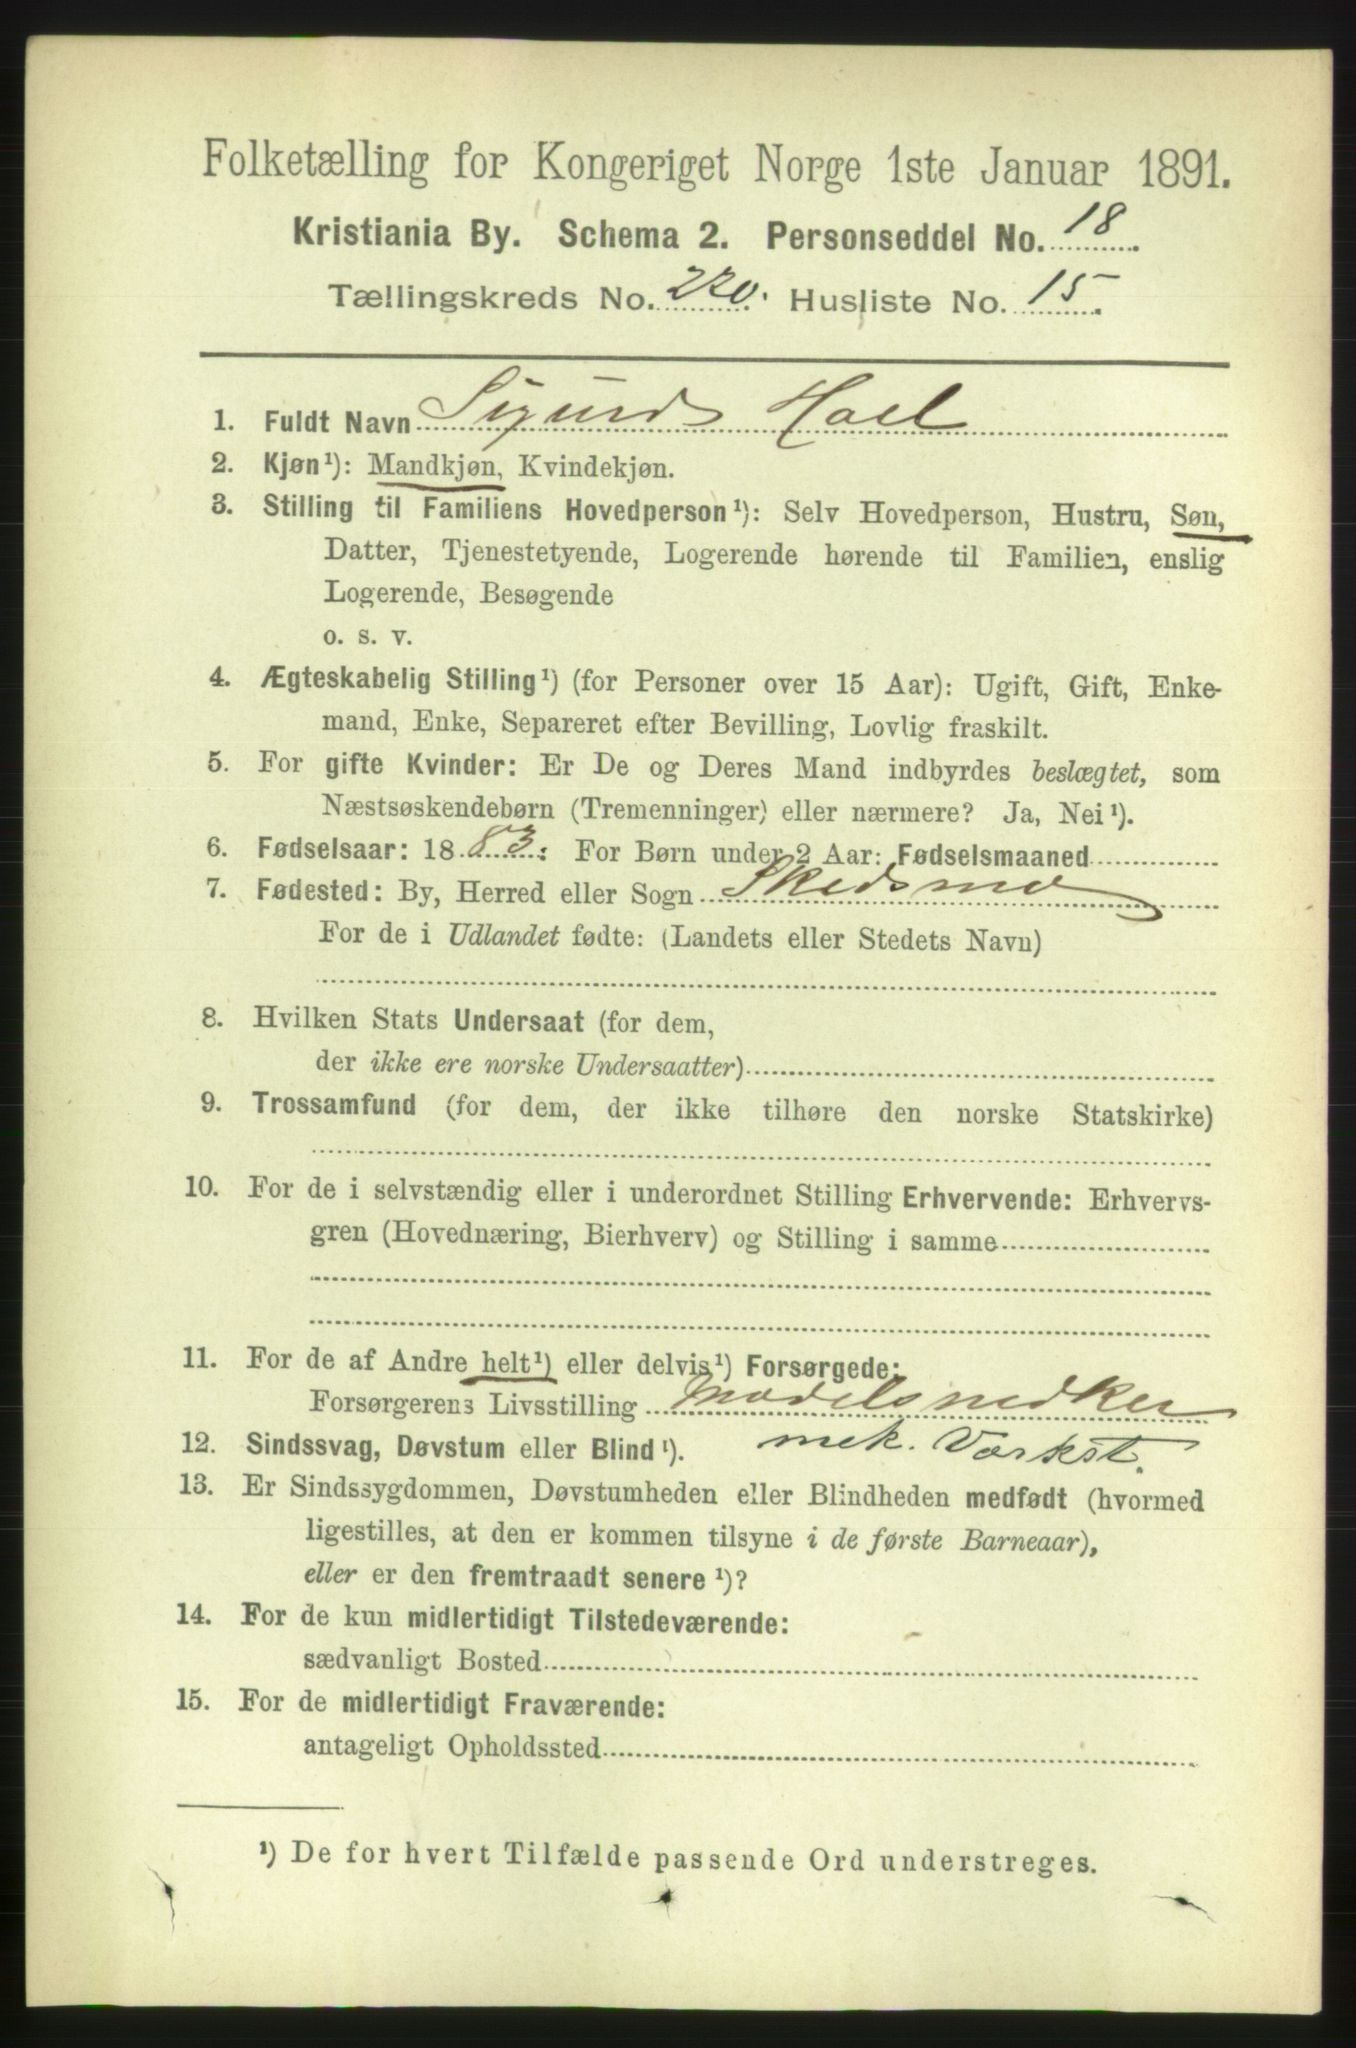 Folketælling for Kongeriget Norge 1ste Januar 1891.
Kristiania By. Schema 2. Personseddel No. 18.
Tællingskreds No. 220. Husliste No. 15.
1. Fuldt Navn Sigurd Hoel
2. Kjøn¹): Mandkjøn, Kvindekjøn.
3. Stilling til Familiens Hovedperson¹): Selv Hovedperson, Hustru, Søn,
Datter, Tjenestetyende, Logerende hørende til Familien, enslig
Logerende, Besøgende
o. s. v.
4. Ægteskabelig Stilling¹) (for Personer over 15 Aar): Ugift, Gift, Enke-
mand, Enke, Separeret efter Bevilling, Lovlig fraskilt.
5. For gifte Kvinder: Er De og Deres Mand indbyrdes beslægtet, som
Næstsøskendebørn (Tremenninger) eller nærmere? Ja, Nei¹).
6. Fødselsaar: 1883. For Børn under 2 Aar: Fødselsmaaned
7. Fødested: By, Herred eller Sogn Skedsmo
For de i Udlandet fødte: (Landets eller Stedets Navn)
8. Hvilken Stats Undersaat (for dem,
der ikke ere norske Undersaatter)
9. Trossamfund (for dem, der ikke tilhøre den norske Statskirke)
10. For de i selvstændig eller i underordnet Stilling Erhvervende: Erhvervs-
gren (Hovednæring, Bierhverv) og Stilling i samme
11. For de af Andre helt¹) eller delvis¹) Forsørgede:
Forsørgerens Livsstilling Modelsnedker
12. Sindssvag, Døvstum eller Blind¹). mek. Værkst.
13. Er Sindssygdommen, Døvstumheden eller Blindheden medfødt (hvormed
ligestilles, at den er kommen tilsyne i de første Barneaar),
eller er den fremtraadt senere¹)?
14. For de kun midlertidigt Tilstedeværende:
sædvanligt Bosted
15. For de midlertidigt Fraværende:
antageligt Opholdssted
¹) De for hvert Tilfælde passende Ord understreges.